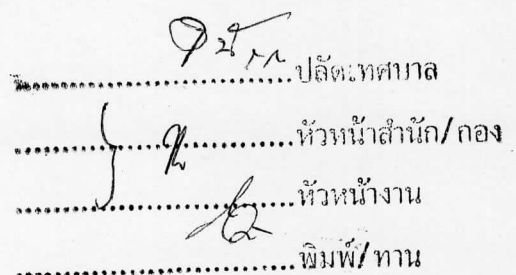 ....................ปลัดเทศบาล
....................หัวหน้าสำนัก/กอง
....................หัวหน้างาน
....................พิมพ์/ทาน